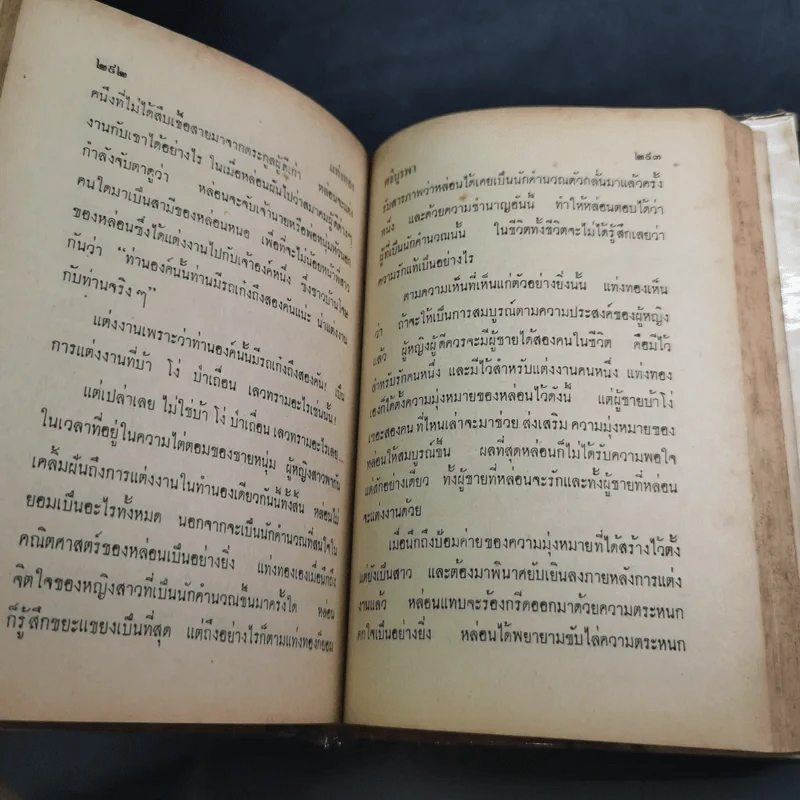 ๒๕๒
แท่งทอง
คนึงที่ไม่ได้สืบเชื้อสายมาจากตระกูลผู้ดีเก่า
งานกับเขาได้อย่างไร ในเมื่อหล่อนฝันไปว่าสมาคมผู้ดีต่างๆ
กำลังจับตาดูว่า หล่อนจะจับเจ้านายหรือพ่อหนุ่มหัวนอก
คนใดมาเป็นสามีของหล่อนหนอ เพื่อที่จะไม่น้อยหน้าพี่สาว
ของหล่อนซึ่งได้แต่งงานไปกับเจ้าองค์หนึ่ง ซึ่งชาวบ้านโจษ
กันว่า “ท่านองค์นั้นท่านมีรถเก๋งถึงสองคันแน่ะ น่าแต่งงาน
กับท่านจริง ๆ”
แต่งงานเพราะว่าท่านองค์นั้นมีรถเก๋งถึงสองคัน! เป็น
การแต่งงานที่บ้า โง่ ป่าเถื่อน เลวทรามอะไรเช่นนั้น!
แต่เปล่าเลย ไม่ใช่บ้า โง่ ป่าเถื่อน เลวทรามอะไรเลย
ในเวลาที่อยู่ในความไต่ตอมของชายหนุ่ม ผู้หญิงสาวพากัน
เคลิ้มฝันถึงการแต่งงานในทำนองเดียวกันนี้ทั้งสิ้น หล่อนไม่
ยอมเป็นอะไรทั้งหมด นอกจากจะเป็นนักคำนวณที่สนใจใน
คณิตศาสตร์ของหล่อนเป็นอย่างยิ่ง แท่งทองเองเมื่อนึกถึง
จิตใจของหญิงสาวที่เป็นนักคำนวณขึ้นมาครั้งใด หล่อน
ก็รู้สึกขยะแขยงเป็นที่สุด แต่ถึงอย่างไรก็ตามแท่งทองก็ยอม
ศรีบูรพา
๒๕๓
รับสารภาพว่าหล่อนได้เคยเป็นนักคำนวณตัวกลั่นมาแล้วครั้ง
หนึ่ง และด้วยความชำนาญอันนี้ ทำให้หล่อนตอบได้ว่า
ผู้ที่เป็นนักคำนวณนั้น ในชีวิตทั้งชีวิตจะไม่ได้รู้สึกเลยว่า
ความรักแท้เป็นอย่างไร
ตามความเห็นที่เห็นแก่ตัวอย่างยิ่งนั้น แท่งทองเห็น
ว่า ถ้าจะให้เป็นการสมบูรณ์ตามความประสงค์ของผู้หญิง
แล้ว ผู้หญิงผู้ดีควรจะมีผู้ชายได้สองคนในชีวิต คือมีไว้
สำหรับรักคนหนึ่ง และมีไว้สำหรับแต่งงานคนหนึ่ง แท่งทอง
เองก็ได้ตั้งความมุ่งหมายของหล่อนไว้ดังนี้ แต่ผู้ชายบ้าโง่
เงอะสองคน ที่ไหนเล่าจะมาช่วย ส่งเสริม ความมุ่งหมายของ
หล่อนให้สมบูรณ์ขึ้น ผลที่สุดหล่อนก็ไม่ได้รับความพอใจ
แต่สักอย่างเดียว ทั้งผู้ชายที่หล่อนจะรักและทั้งผู้ชายที่หล่อน
จะแต่งงานด้วย
เมื่อนึกถึงป้อมค่ายของความมุ่งหมายที่ได้สร้างไว้ตั้ง
แต่ยังเป็นสาว และต้องมาพินาศยับเยินลงภายหลังการแต่ง
งานแล้ว หล่อนแทบจะร้องกรีดออกมาด้วยความตระหนก
ตกใจเป็นอย่างยิ่ง หล่อนได้พยายามขับไล่ความตระหนก